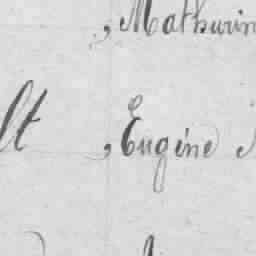 , Mathurin
lt , Eugène